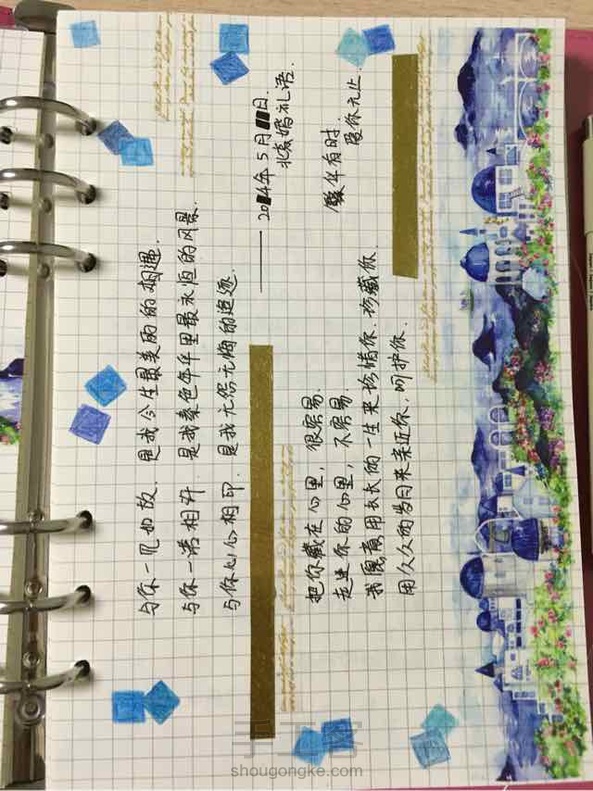 与你一见如故.是我今生最美丽的相遇.
与你一诺相许.是我素色年华里最永恒的风景.
与你心心相印.是我无怨无悔的追逐.
—— 20 4年5月 日.
婚礼语.
把你藏在心里,很容易.
走进你的心里,不容易.
我愿意用长长的一生来珍惜你.珍藏你
用久久的岁月来亲近你.呵护你.
伴有时.
你无止.
手工客
shougongke.com